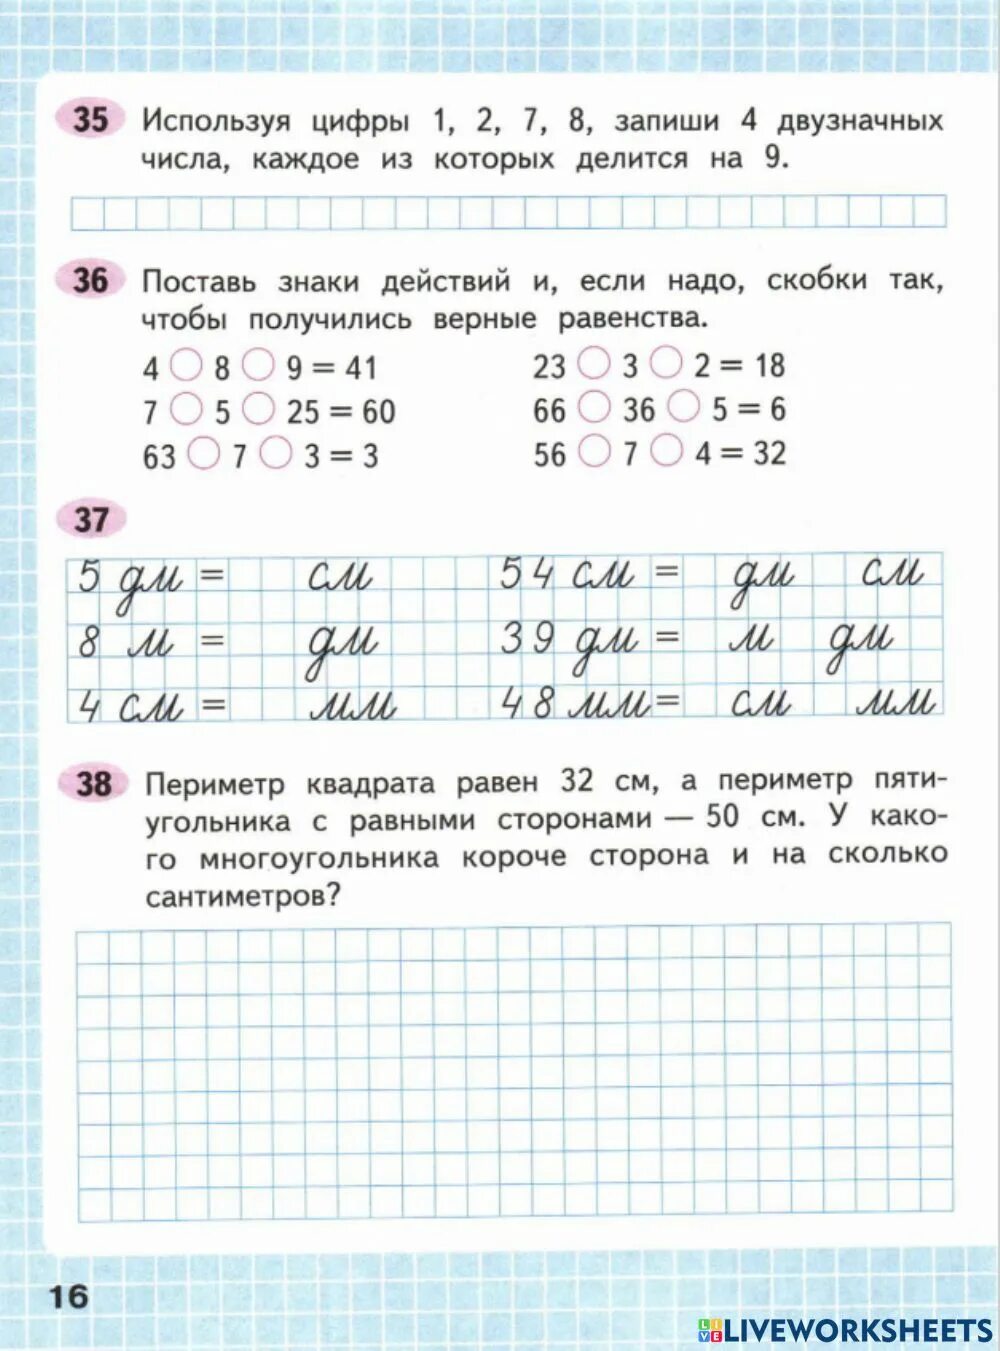 35 Используя цифры 1, 2, 7, 8, запиши 4 двузначных
числа, каждое из которых делится на 9.
36 Поставь знаки действий и, если надо, скобки так,
чтобы получились верные равенства.
4 ◯ 8 ◯ 9 = 41 23 ◯ 3 ◯ 2 = 18
7 ◯ 5 ◯ 25 = 60 66 ◯ 36 ◯ 5 = 6
63 ◯ 7 ◯ 3 = 3 56 ◯ 7 ◯ 4 = 32
37
5 дм = см 54 см = дм см
8 м = дм 39 дм = м дм
4 см = мм 48 мм = см мм
38 Периметр квадрата равен 32 см, а периметр пяти-
угольника с равными сторонами — 50 см. У како-
го многоугольника короче сторона и на сколько
сантиметров?
16
LIVEWORKSHEETS